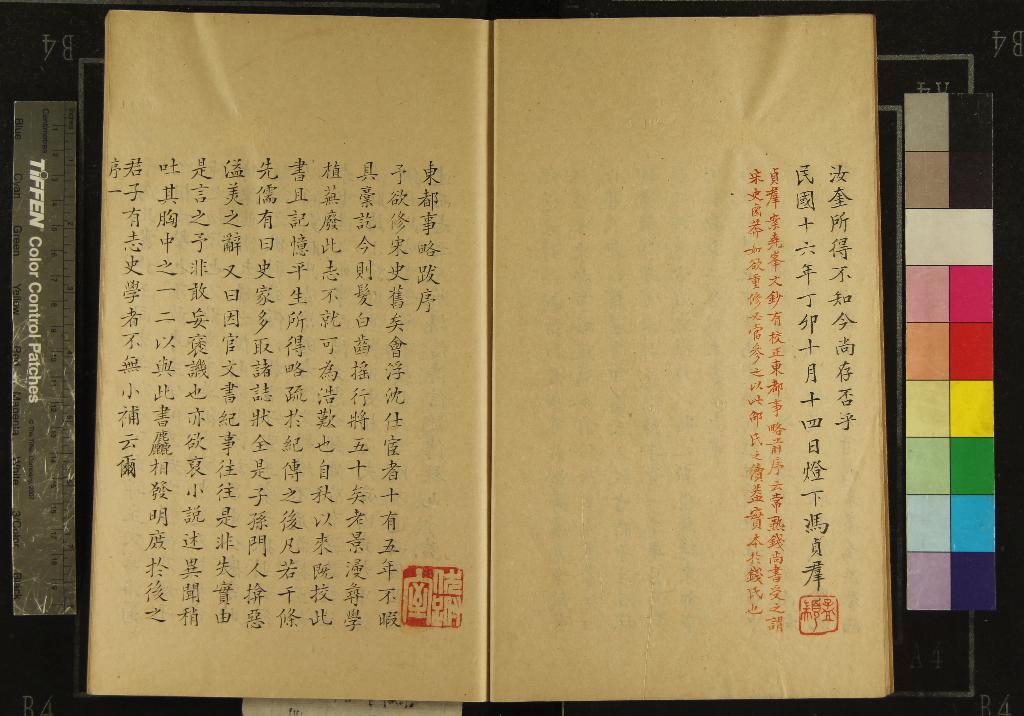 汝奎所得不知今尚存否乎
民國十六年丁卯十月十四日燈下馮貞羣
貞羣案堯峯文鈔有校正東都事略前序云常熟錢尚書受之謂
宋史窳莽如欲重修必當參之以此鄧氏之讀蓋實本於錢氏也
東都事略跋序
予欲修宋史舊矣會浮沈仕宦者十有五年不暇
具稾訖今則髮白齒搖行將五十矣老景漫尋學
植蕪廢此志不就可為浩歎也自秋以來既挍此
書且記憶平生所得略疏於紀傳之後凡若干條
先儒有曰史家多取諸誌狀全是子孫門人揜惡
溢美之辭又曰因官文書紀事往往是非失實由
是言之予非敢妄褒譏也亦欲裒小說述異聞稍
吐其胸中之一二以與此書麤相發明庶於後之
君子有志史學者不無小補云爾
序一
TIFFEN Color Control Patches
Blue
Cyan
Green
Yellow
Red
Magenta
White
3/Color
Black
Centimetres
B4
B4
A4
A4
B4
B4